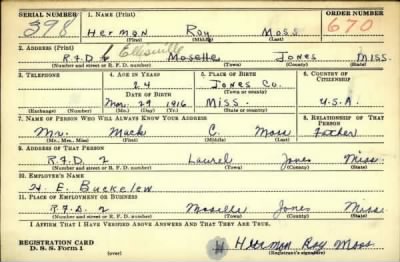 SERIAL NUMBER 1. NAME (Print) ORDER NUMBER
398 Herman Roy Moss 670
(First) (Middle) (Last)
2. ADDRESS (Print) Ellisville
R.F.D. 2 Moselle Jones Miss.
(Number and street or R. F. D. number) (Town) (County) (State)
3. TELEPHONE 4. AGE IN YEARS 5. PLACE OF BIRTH 6. COUNTRY OF CITIZENSHIP
24 Jones Co.
DATE OF BIRTH (Town or county)
Mar. 29 1916 Miss. U.S.A.
(Exchange) (Number) (Mo.) (Day) (Yr.) (State or country)
7. NAME OF PERSON WHO WILL ALWAYS KNOW YOUR ADDRESS 8. RELATIONSHIP OF THAT PERSON
Mr. Mack C. Moss Father
(Mr., Mrs., Miss) (First) (Middle) (Last)
9. ADDRESS OF THAT PERSON
R.F.D. 2 Laurel Jones Miss.
(Number and street or R. F. D. number) (Town) (County) (State)
10. EMPLOYER'S NAME
H. E. Buckelew
11. PLACE OF EMPLOYMENT OR BUSINESS
R.F.D. 2 Moselle Jones Miss.
(Number and street or R. F. D. number) (Town) (County) (State)
I AFFIRM THAT I HAVE VERIFIED ABOVE ANSWERS AND THAT THEY ARE TRUE.
REGISTRATION CARD
D. S. S. Form 1 (over) Herman Roy Moss
(Registrant's signature)